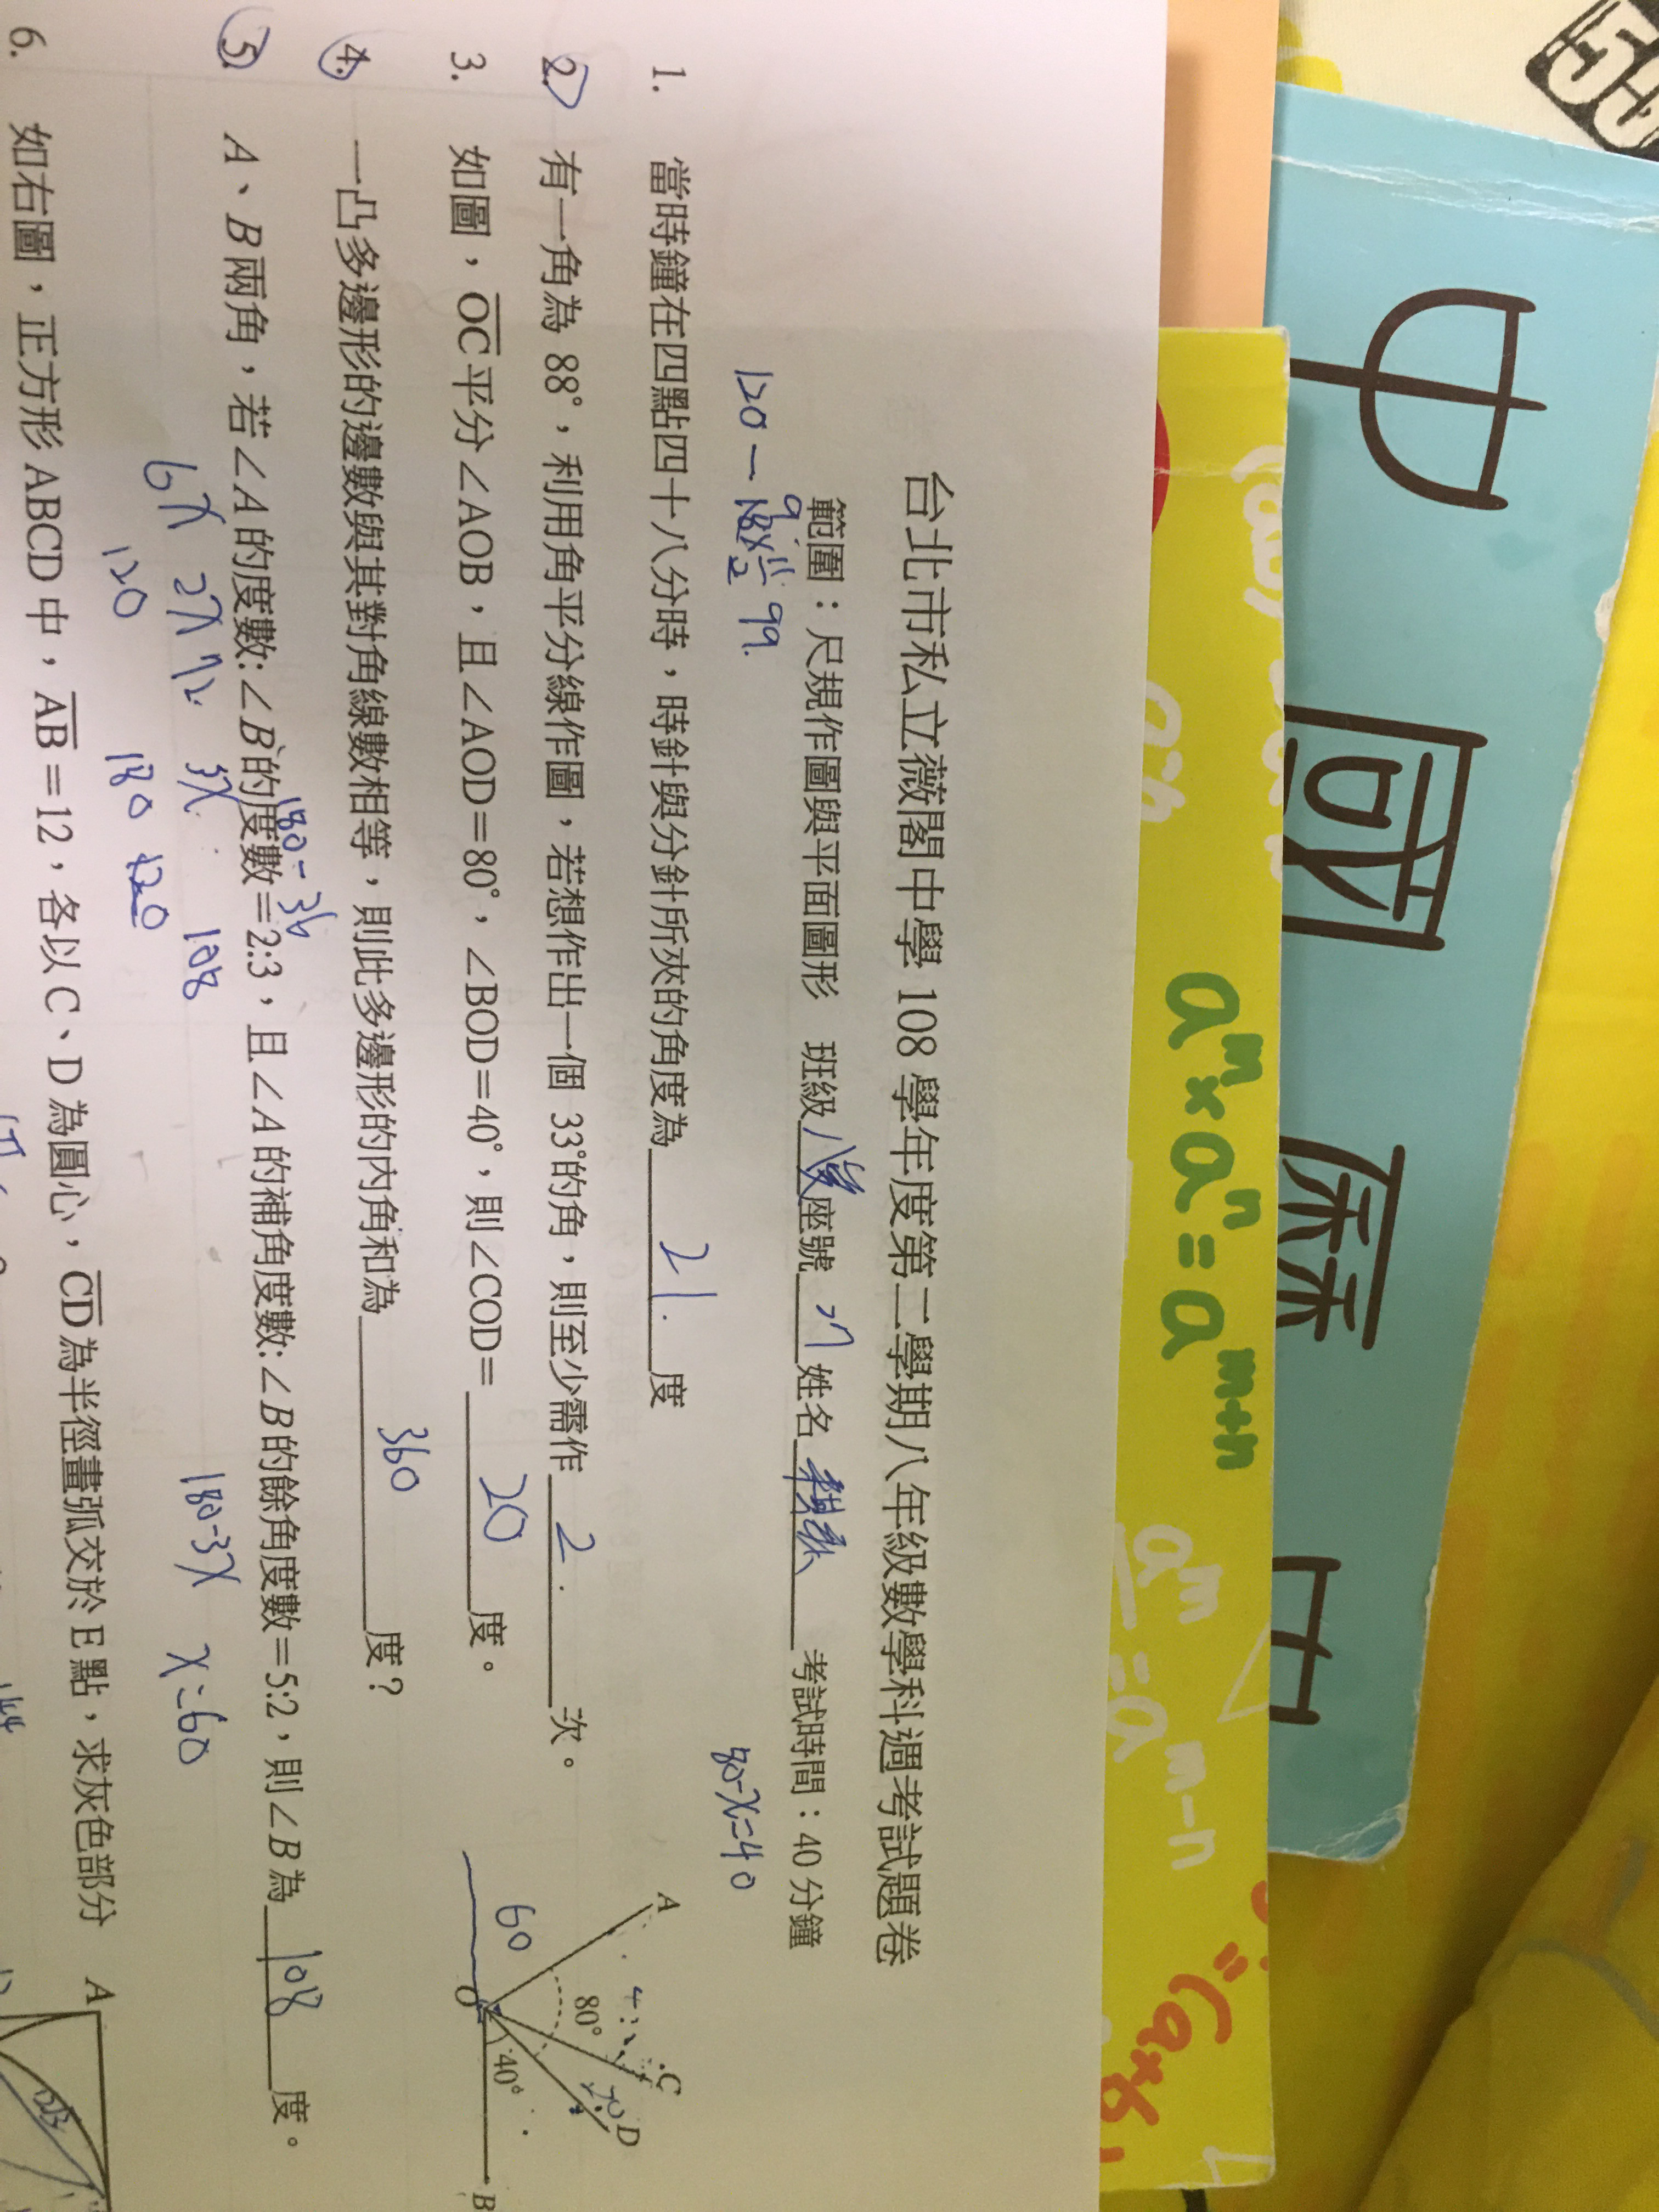 台北市私立薇閣中學 108 學年度第二學期八年級數學科週考試題卷
範圍：尺規作圖與平面圖形 班級 座號 27 姓名 考試時間：40 分鐘
80-x=40
1. 當時鐘在四點四十八分時，時針與分針所夾的角度為 21. 度
2. 有一角為 88°，利用角平分線作圖，若想作出一個 33°的角，則至少需作 2. 次。
3. 如圖，OC平分∠AOB，且∠AOD=80°，∠BOD=40°，則∠COD= 20 度。
A
C
D
80°
20
60
O
40°
B
4. 一凸多邊形的邊數與其對角線數相等，則此多邊形的內角和為 360 度？
180-36
5. A、B兩角，若∠A的度數:∠B的度數=2:3，且∠A的補角度數:∠B的餘角度數=5:2，則∠B為 108 度。
6x 2x 72 3x 108 180-3x x=60
120 180 120
6. 如右圖，正方形 ABCD 中，AB=12，各以 C、D 為圓心，CD為半徑畫弧交於 E 點，求灰色部分
A
中
國
a^m×a^n=a^m+n
a^m
=a^m-n